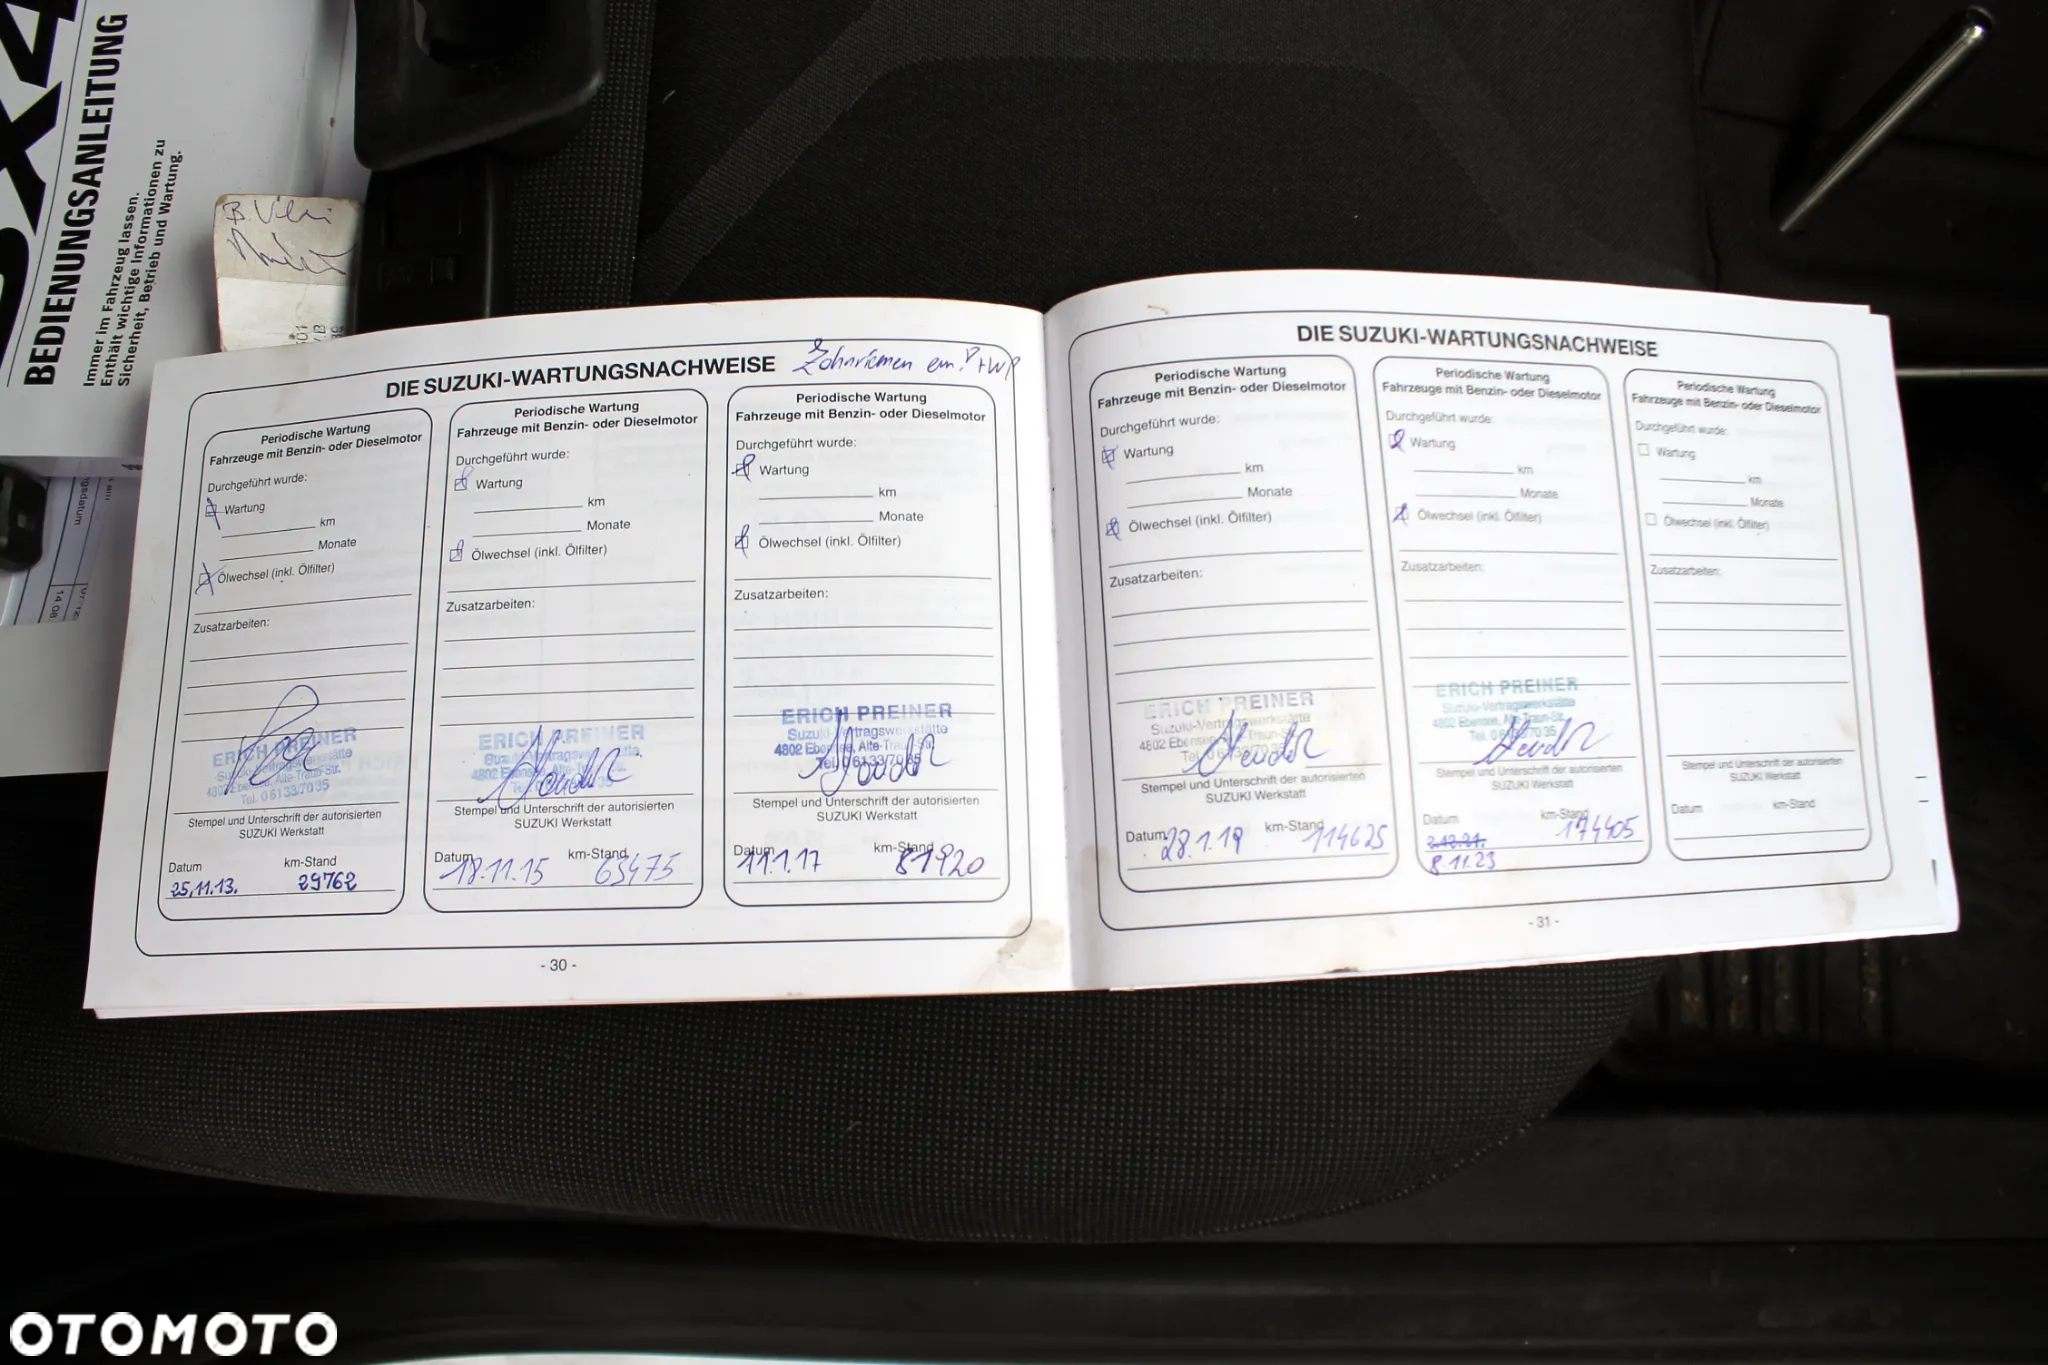 SX4
BEDIENUNGSANLEITUNG
Immer im Fahrzeug lassen.
Enthält wichtige Informationen zu
Sicherheit, Betrieb und Wartung.
DIE SUZUKI-WARTUNGSNACHWEISE
Periodische Wartung
Fahrzeuge mit Benzin- oder Dieselmotor
Durchgeführt wurde:
Wartung
km
Monate
Ölwechsel (inkl. Ölfilter)
Zusatzarbeiten:
ERICH PREINER
Suzuki-Vertragswerkstätte
4802 Ebensee, Alte-Traun-Str.
Tel. 06133/7035
Stempel und Unterschrift der autorisierten
SUZUKI Werkstatt
Datum km-Stand
25.11.13. 29762
Periodische Wartung
Fahrzeuge mit Benzin- oder Dieselmotor
Durchgeführt wurde:
Wartung
km
Monate
Ölwechsel (inkl. Ölfilter)
Zusatzarbeiten:
ERICH PREINER
Suzuki-Vertragswerkstätte
4802 Ebensee, Alte-Traun-Str.
Stempel und Unterschrift der autorisierten
SUZUKI Werkstatt
Datum km-Stand
18.11.15 63475
Zahnriemen
Periodische Wartung
Fahrzeuge mit Benzin- oder Dieselmotor
Durchgeführt wurde:
Wartung
km
Monate
Ölwechsel (inkl. Ölfilter)
Zusatzarbeiten:
ERICH PREINER
Suzuki-Vertragswerkstätte
4802 Ebensee, Alte-Traun-Str.
Tel. 06133/7035
Stempel und Unterschrift der autorisierten
SUZUKI Werkstatt
Datum km-Stand
11.1.17 81920
- 30 -
DIE SUZUKI-WARTUNGSNACHWEISE
Periodische Wartung
Fahrzeuge mit Benzin- oder Dieselmotor
Durchgeführt wurde:
Wartung
km
Monate
Ölwechsel (inkl. Ölfilter)
Zusatzarbeiten:
ERICH PREINER
Suzuki-Vertragswerkstätte
4802 Ebensee, Alte-Traun-Str.
Tel. 06133/7035
Stempel und Unterschrift der autorisierten
SUZUKI Werkstatt
Datum km-Stand
28.1.19 114625
Periodische Wartung
Fahrzeuge mit Benzin- oder Dieselmotor
Durchgeführt wurde:
Wartung
km
Monate
Ölwechsel (inkl. Ölfilter)
Zusatzarbeiten:
ERICH PREINER
Suzuki-Vertragswerkstätte
4802 Ebensee, Alte-Traun-Str.
Tel. 06133/7035
Stempel und Unterschrift der autorisierten
SUZUKI Werkstatt
Datum km-Stand
174405
8.11.23
Periodische Wartung
Fahrzeuge mit Benzin- oder Dieselmotor
Durchgeführt wurde:
Wartung
km
Monate
Ölwechsel (inkl. Ölfilter)
Zusatzarbeiten:
Stempel und Unterschrift der autorisierten
SUZUKI Werkstatt
Datum km-Stand
- 31 -
OTOMOTO